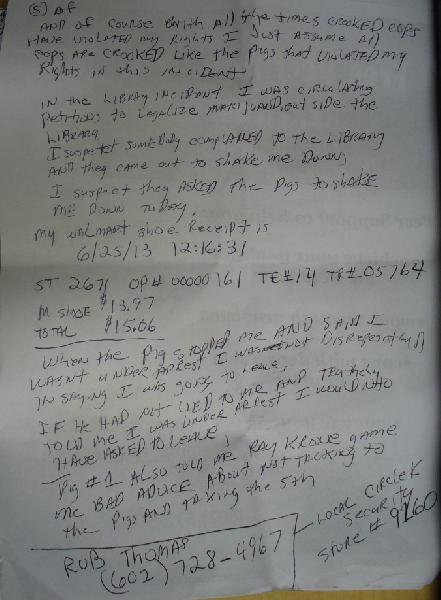 (5) OF
AND OF COURSE WITH All the times CROOKED COPS
HAVE VIOLATED my Rights I Just Assume All
COPS ARE CROOKED LIKE the Pigs that VIOLATED my
Rights in this incident
IN the LIBRARY INCIDENT I WAS CIRCULATING
Petitions to LEGALIZE MARIJUANA OUT SIDE the
LIBRARY
I suspect Somebody complained to the LIBRARY
AND they CAME out to SHAKE me DOWN,
I suspect they ASKED the Pigs to SHAKE
ME DOWN TODAY.
my WALMART Shoe Receipt is
6/25/13 12:16:31
ST 2671 OP# 00000161 TE#14 TR# 05764
M SHOE $13.97
TOTAL $15.06
When the Pig STOPPED me AND SAID I
WASN't UNDER ARREST I WAS not DISRESPECTFUL
IN SAYING I WAS going to LEAVE,
IF HE HAD NOT LIED TO ME AND
TOLD me I WAS UNDER ARREST I WOULD
HAVE ASKED to LEAVE,
Pig #1 ALSO TOLD me RAY KRONE gave
me BAD ADVICE ABOUT Not TALKING to
the Pigs AND TAKING the 5th
ROB THOMAS
(602) 728-4967
LOCAL CIRCLE K
SECURITY
STORE # 9160